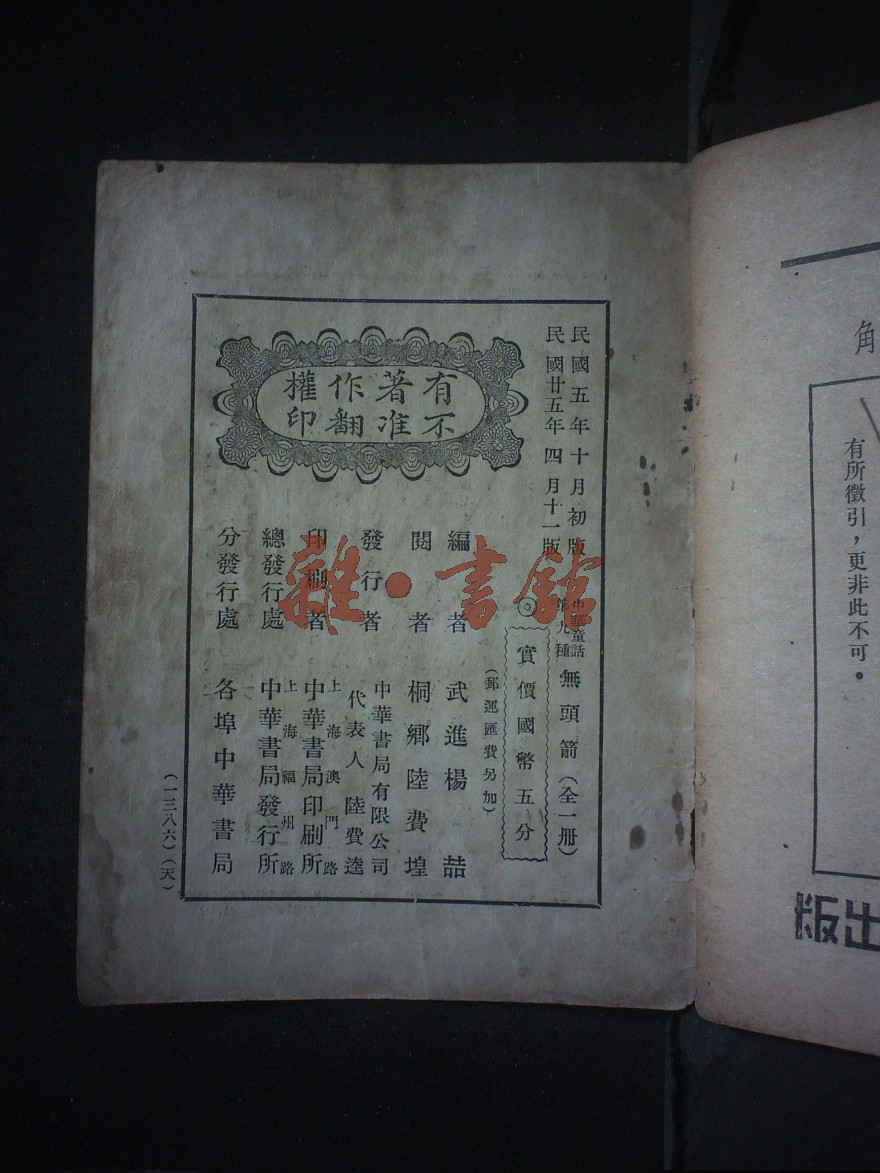 民國五年十月初版
民國廿五年四月十一版
有著作權
不准翻印
中華童話
第九種
無頭箭（全一冊）
◎
實價國幣五分
（郵運匯費另加）
編者　武進楊喆
閱者　桐鄉陸費堭
發行者　中華書局有限公司
代表人　陸費逵
印刷者　上海澳門路
中華書局印刷所
總發行處　上海福州路
中華書局發行所
分發行處　各埠中華書局
（一三八六）（天）
雜·書館
有所徵引，更非此不可。
出版